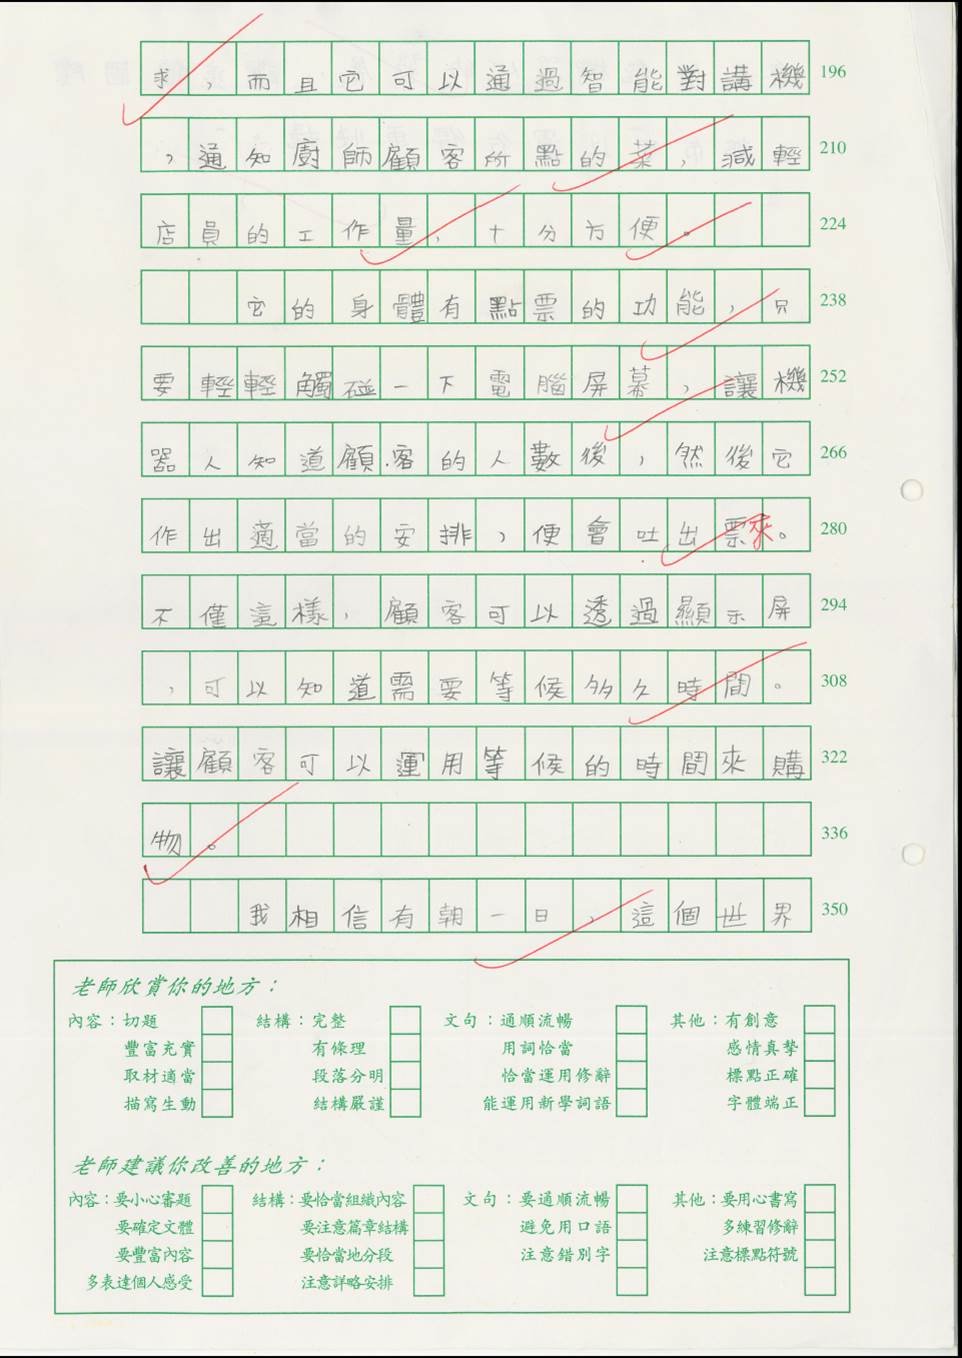 求，而且它可以通過智能對講機 196
，通知廚師顧客所點的菜，減輕 210
店員的工作量，十分方便。 224
它的身體有點票的功能，只 238
要輕輕觸碰一下電腦屏幕，讓機 252
器人知道顧客的人數後，然後它 266
作出適當的安排，便會吐出票來。 280
不僅這樣，顧客可以透過顯示屏 294
，可以知道需要等候多久時間。 308
讓顧客可以運用等候的時間來購 322
物。 336
我相信有朝一日，這個世界 350
老師欣賞你的地方：
內容：切題 結構：完整 文句：通順流暢 其他：有創意
豐富充實 有條理 用詞恰當 感情真摯
取材適當 段落分明 恰當運用修辭 標點正確
描寫生動 結構嚴謹 能運用新學詞語 字體端正
老師建議你改善的地方：
內容：要小心審題 結構：要恰當組織內容 文句：要通順流暢 其他：要用心書寫
要確定文體 要注意篇章結構 避免用口語 多練習修辭
要豐富內容 要恰當地分段 注意錯別字 注意標點符號
多表達個人感受 注意詳略安排